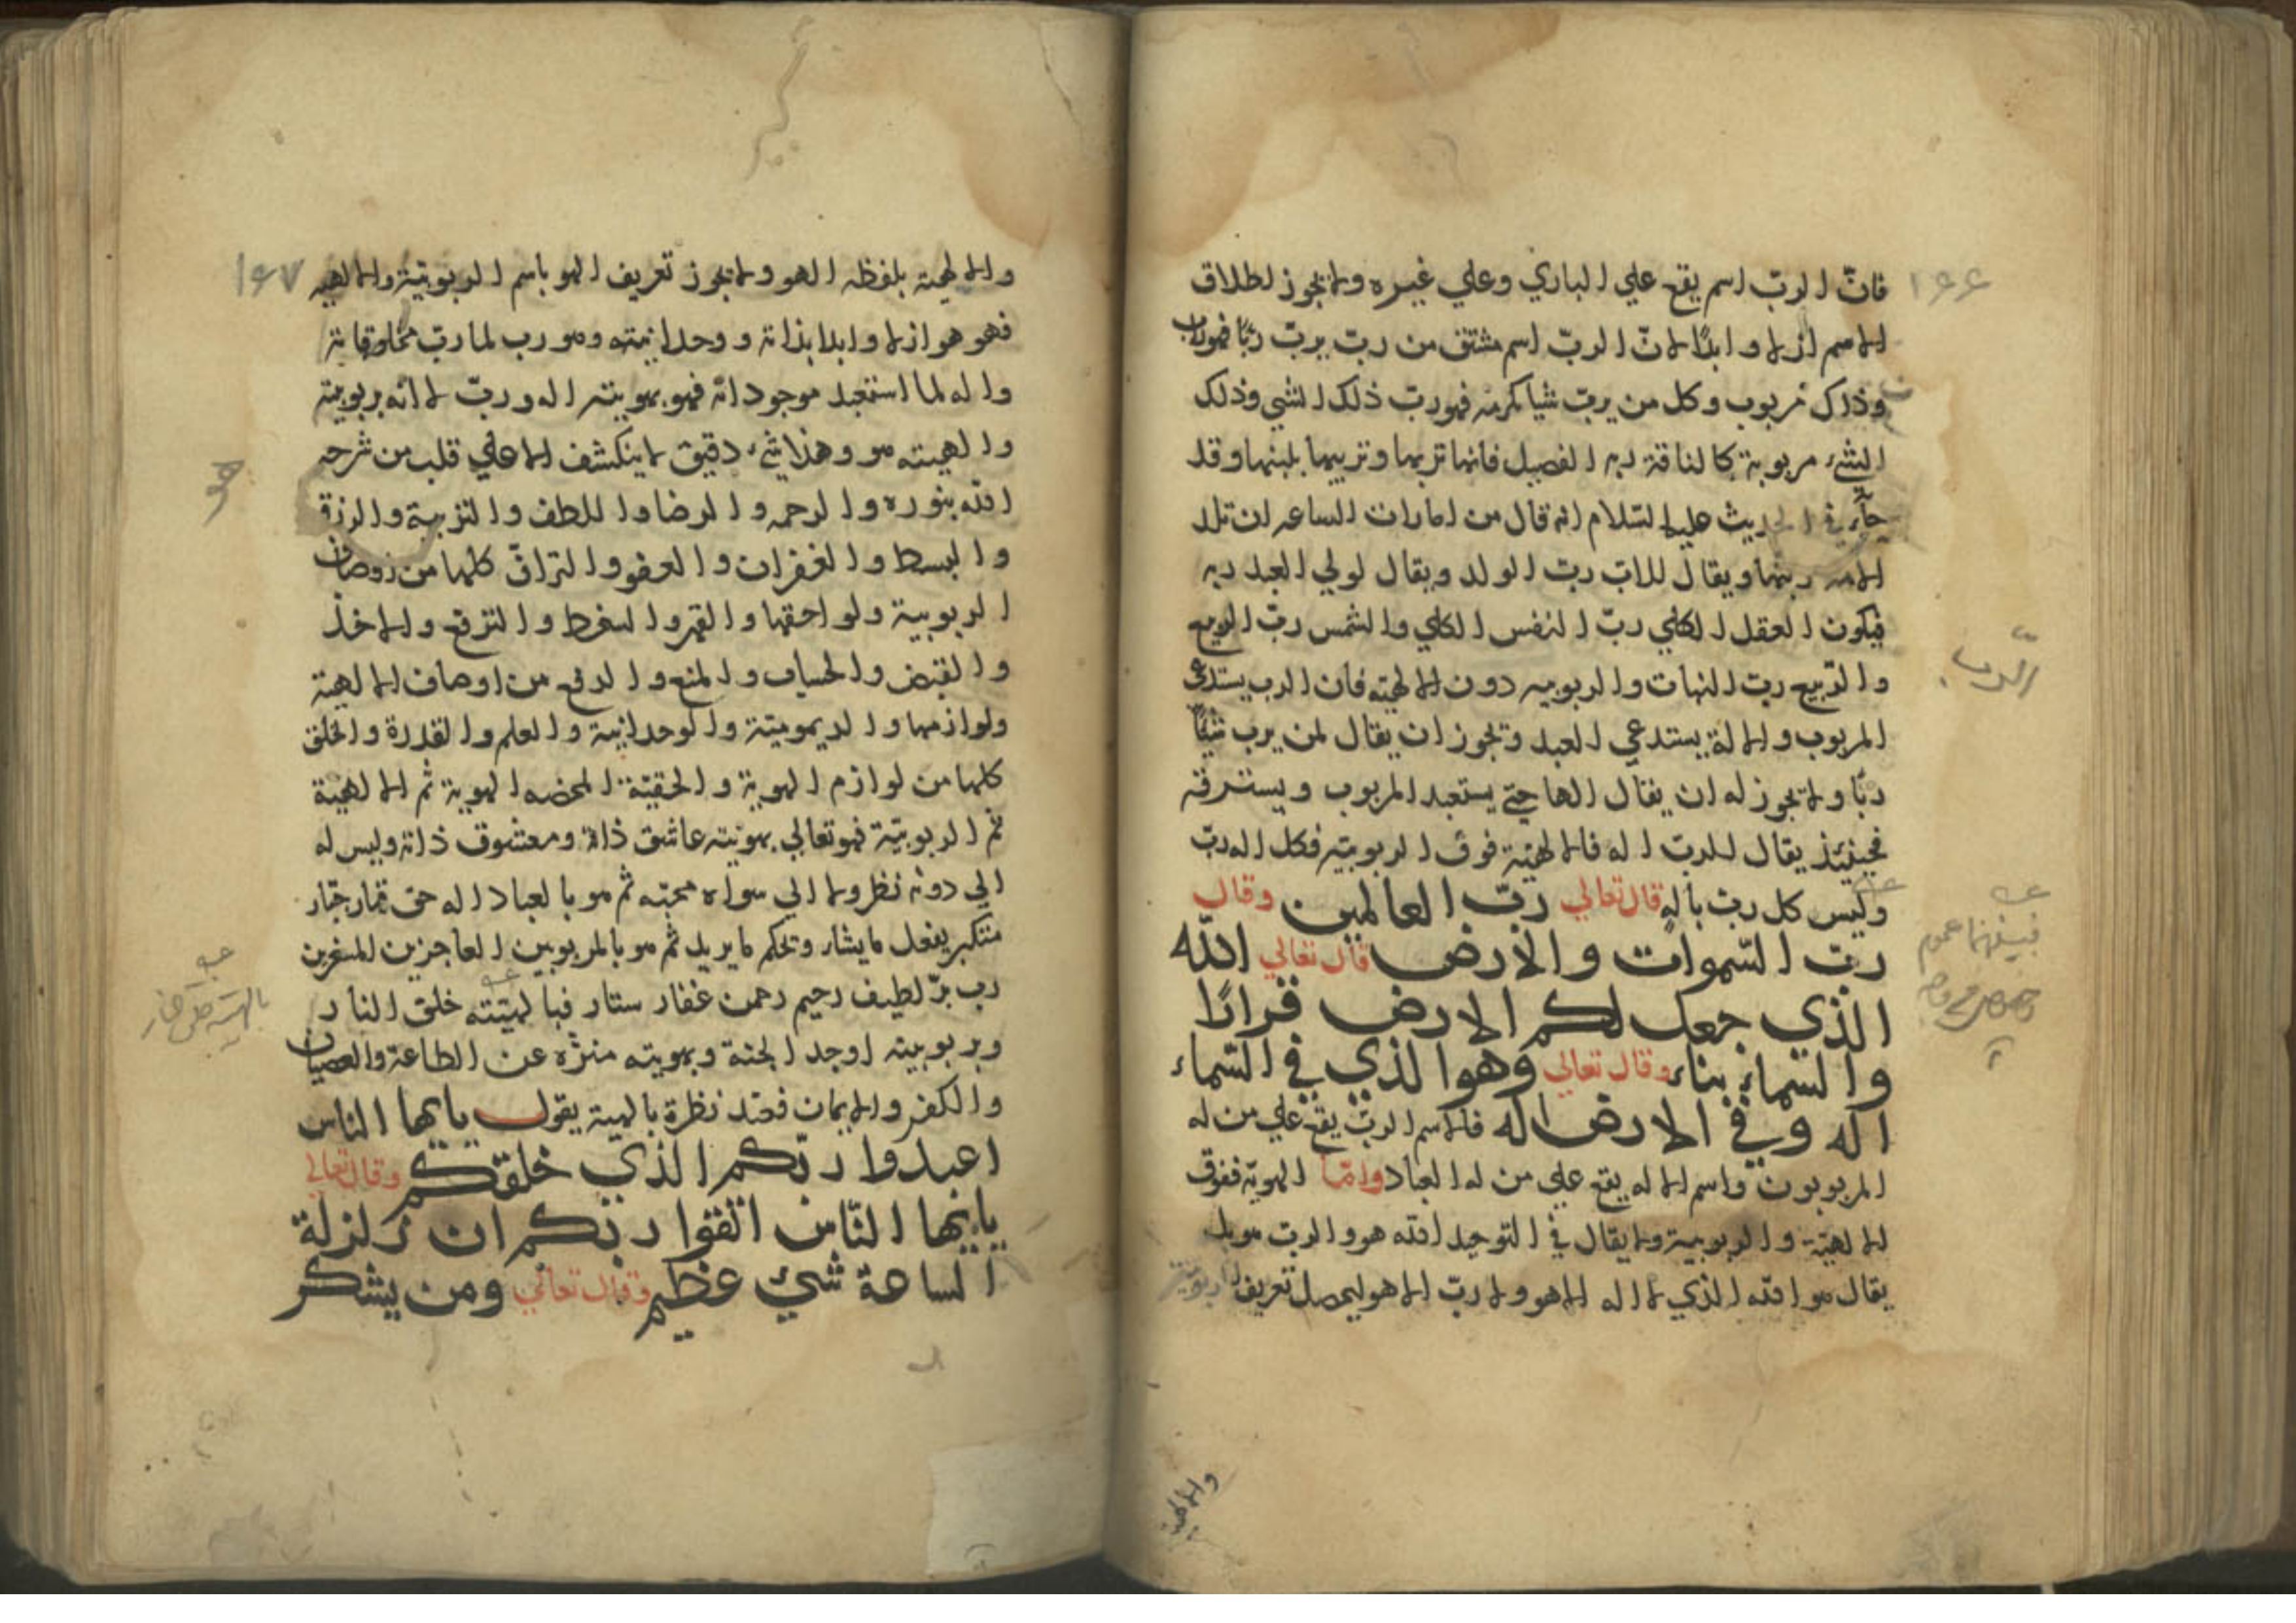 ١٤٤
فان الرب اسم يقع علي الباري وعلي غيره ولا يجوز اطلاق
الاسم ازلا وابدًا لانّ الربّ اسم مشتق من ربّ يربّ ربّا فهو رب
وذلك مربوب وكل من يربّ شيا كرمه فهو ربّ ذلك الشي وذلك
الشيء مربوبة كالناقة ربه الفصيل فانها تربها وتربيها بلبنها وقد
جآء في الحديث عليه السّلام انه قال من امارات الساعه ان تلد
الامه ربتها ويقال للاب ربّ الولد ويقال لولي العبد ربه
فيكون العقل الكلي ربّ النفس الكلي والشمس ربّ الربيع
والرّبيع ربّ النبات والربوبيه دون الالهيته فان الرب يستدعي
المربوب والالة يستدعي العبد ويجوز ان يقال لمن يرب شيًا
ربّا ولا يجوز له ان يقال الها حتي يستعبد المربوب ويسترقه
فحينئذ يقال للربّ اله فالالهيّة فوق الربوبيّه فكل اله ربّ
وليس كل ربّ باله قال تعالي ربّ العالمين وقال
ربّ السّموات والارض قال تعالي الله
الذي جعل لكم الارض قرارًا
والسّماء بناء وقال تعالي وهو الذي في السّماء
اله وفي الارض اله فالاسم الربّ يقع علي من له
المربوبون واسم الاله يقع علي من له العباد وامّا الهويّه ففوق
الالهيّة والربوبية ولا يقال في التوحيد الله هو والربّ هو بل
يقال هو الله الذي لا اله الا هو ولا ربّ الا هو ليحصل تعريف الربوبيّة
والالهية
الرّب
فبينهما عموم
١٤٧
والالهيّة بلفظه الهو ولا يجوز تعريف الهو باسم الربوبيّة والالهيه
فهو هو ازلا وابدا بذاته ووحدانيته وهو رب لما ربّ مخلوقاته
واله لما استعبد موجوداته فهو بهويته اله وربّ لا انه بربوبيته
والهيته هو وهذا شيء دقيق لا ينكشف الا علي قلب من شرحه
الله بنوره والرحمه والرضا واللطف والتربية والرزق
والبسط والغفران والعفو والترافّ كلها من اوصاف
الربوبية ولواحقها والقهر والسخط والترفع والاخذ
والقبض والحساب والمنع والدفع من اوصاف الالهية
ولوازمها والديموميّة والوحدانية والعلم والقدرة والخلق
كلها من لوازم الهوية والحقيّة المحضه الهوية ثم الالهية
ثم الربوبيّة فهو تعالي بهويّته عاشق ذاته ومعشوق ذاته وليس له
الي دونه نظر ولا الي سواه محبّه ثم هو بالعباد اله حق قهار جبّار
متكبر يفعل ما يشاء ويحكم ما يريد ثم هو بالمربوبين العاجزين المستغرين
رب برّ لطيف رحيم رحمن غفار ستار فبالهيّته خلق النار
وبربوبيته اوجد الجنة وبهويته منزّه عن الطاعة والعصيان
والكفر والايمان فعند نظرة بالهية يقول يايها الناس
اعبدوا ربّكم الذي خلقكم وقال تعالي
يايّها النّاس اتّقوا ربكم ان زلزلة
الساعة شيء عظيم وقال تعالي ومن يشكر
هو